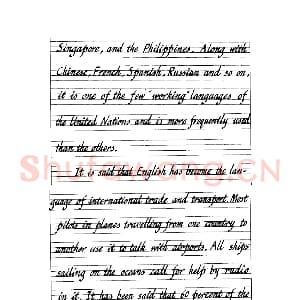 Singapore, and the Philippines. Along with
Chinese, French, Spanish, Russian and so on,
it is one of the few "working" languages of
the United Nations and is more frequently used
than the others.
It is said that English has become the lan-
guage of international trade and transport. Most
pilots in planes travelling from one country to
another use it to talk with airports. All ships
sailing on the oceans call for help by radio
in it. It has been said that 60 percent of the
Shufawang.CN